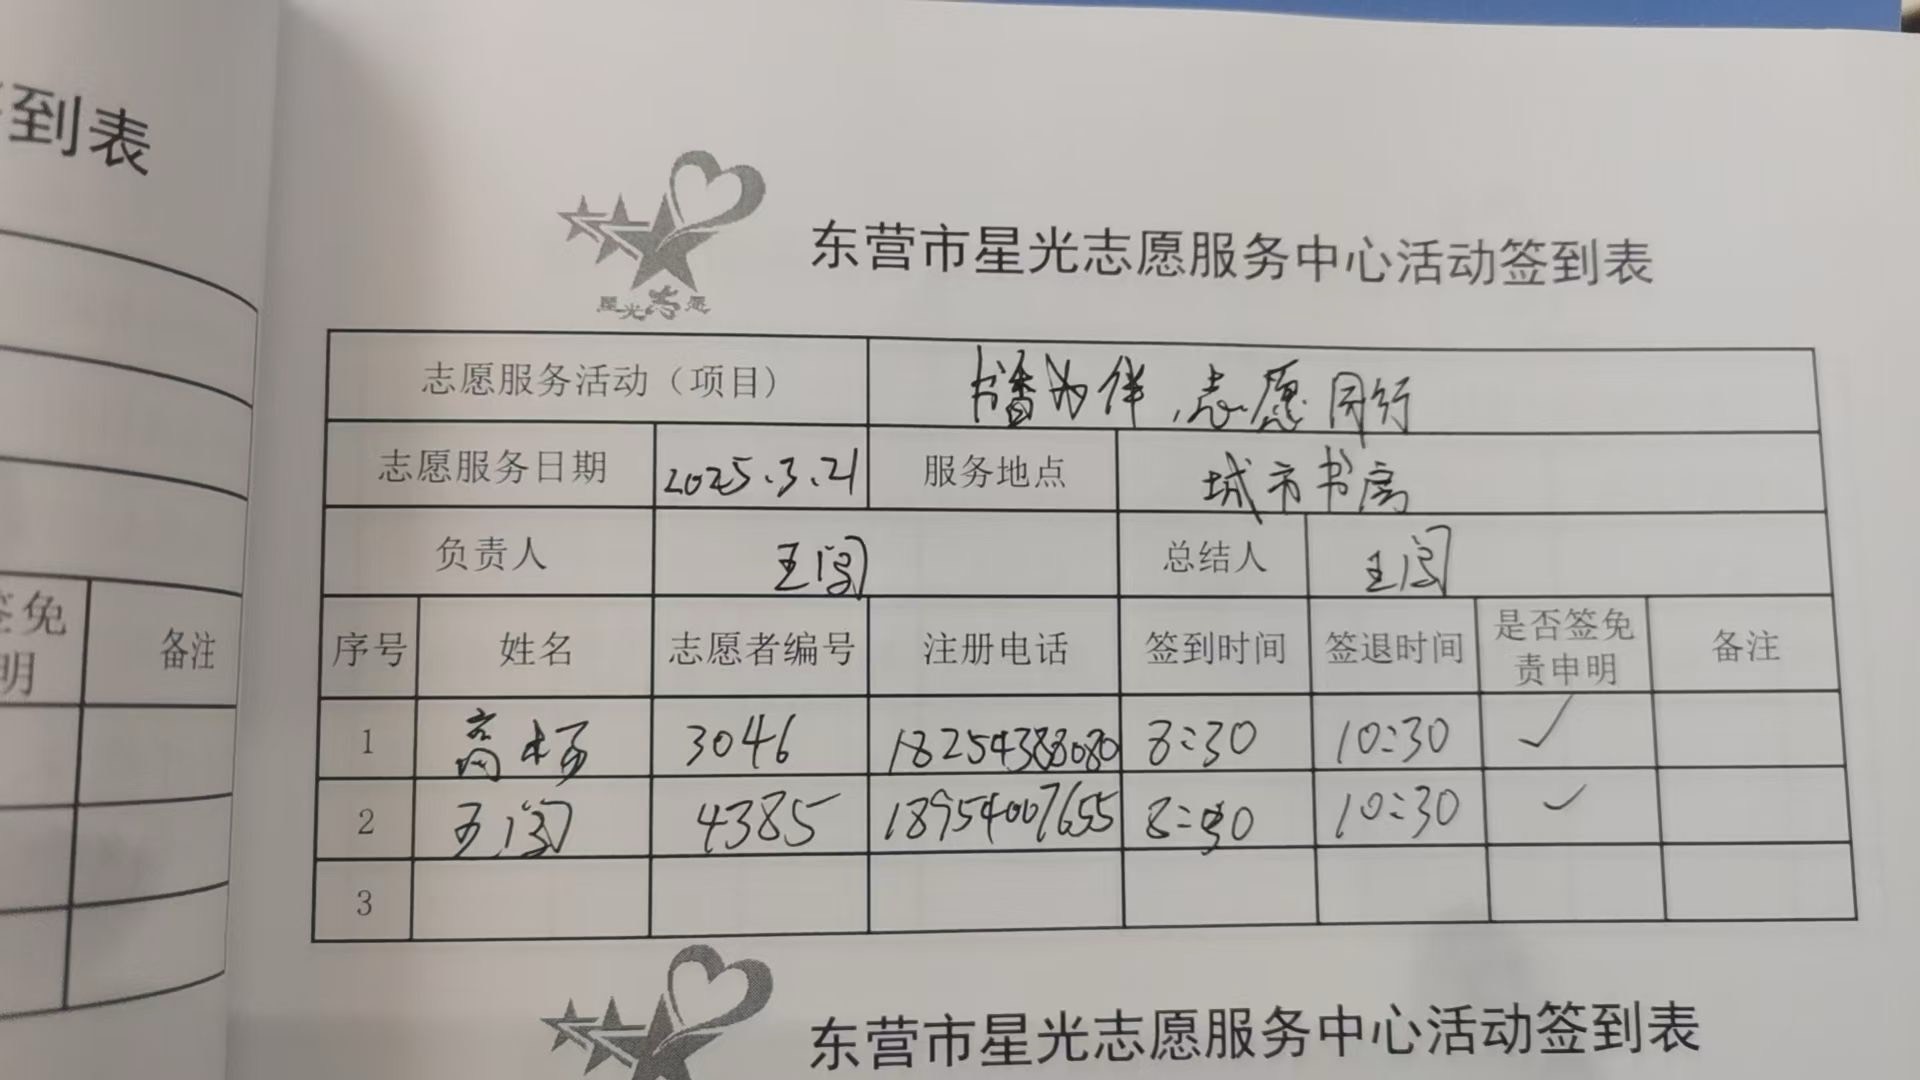 到表
签免
明
备注
星光志愿
东营市星光志愿服务中心活动签到表
志愿服务活动（项目） 书香为伴，志愿同行
志愿服务日期 2025.3.21 服务地点 城市书房
负责人 王闯 总结人 王闯
序号 姓名 志愿者编号 注册电话 签到时间 签退时间 是否签免责申明 备注
1 高杨 3046 18254388080 8:30 10:30 ✓
2 王闯 4385 18954007655 8:30 10:30 ✓
3
东营市星光志愿服务中心活动签到表